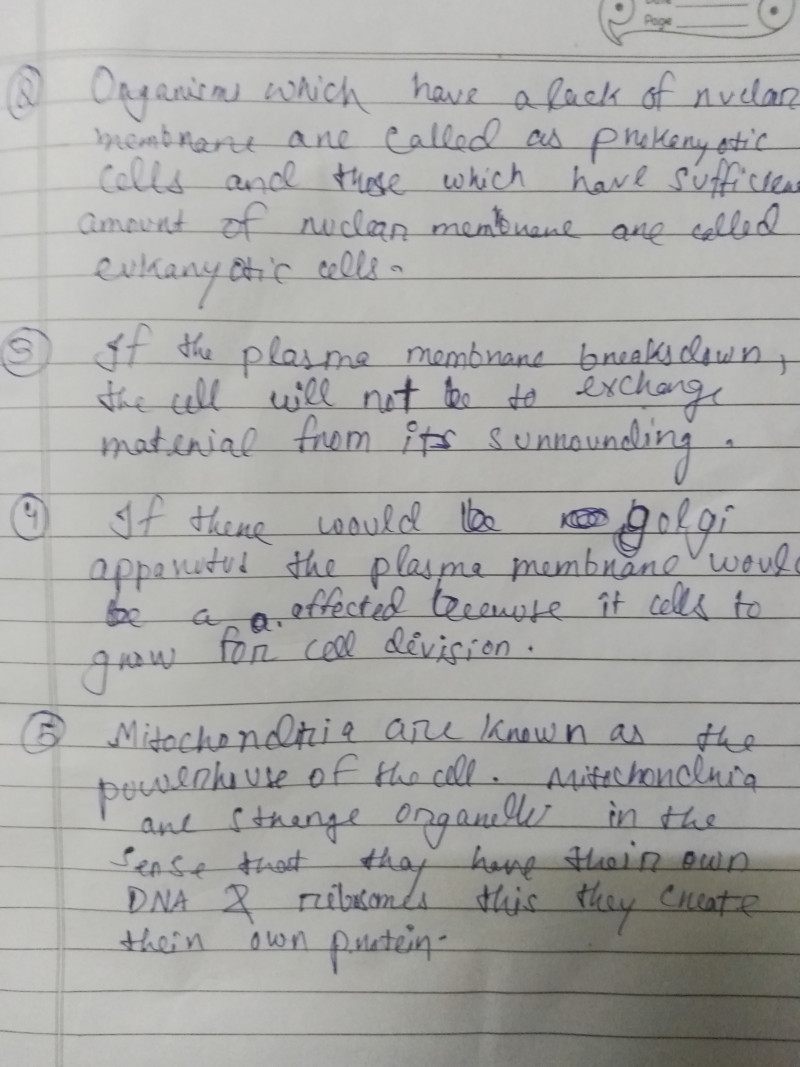 Page
② Organisms which have a lack of nuclear
membrane are called as prokaryotic
cells and those which have sufficien
amount of nuclear membrane are called
eukaryotic cells.
③ If the plasma membrane breaksdown,
the cell will not be to exchange
material from its surrounding.
④ If there would be golgi
apparatus the plasma membrane would
be a a. affected because it cells to
grow for cell division.
⑤ Mitochondria are known as the
powerhouse of the cell. Mitochondria
are strange organelle in the
sense that they have their own
DNA & ribosomes this they create
their own protein.